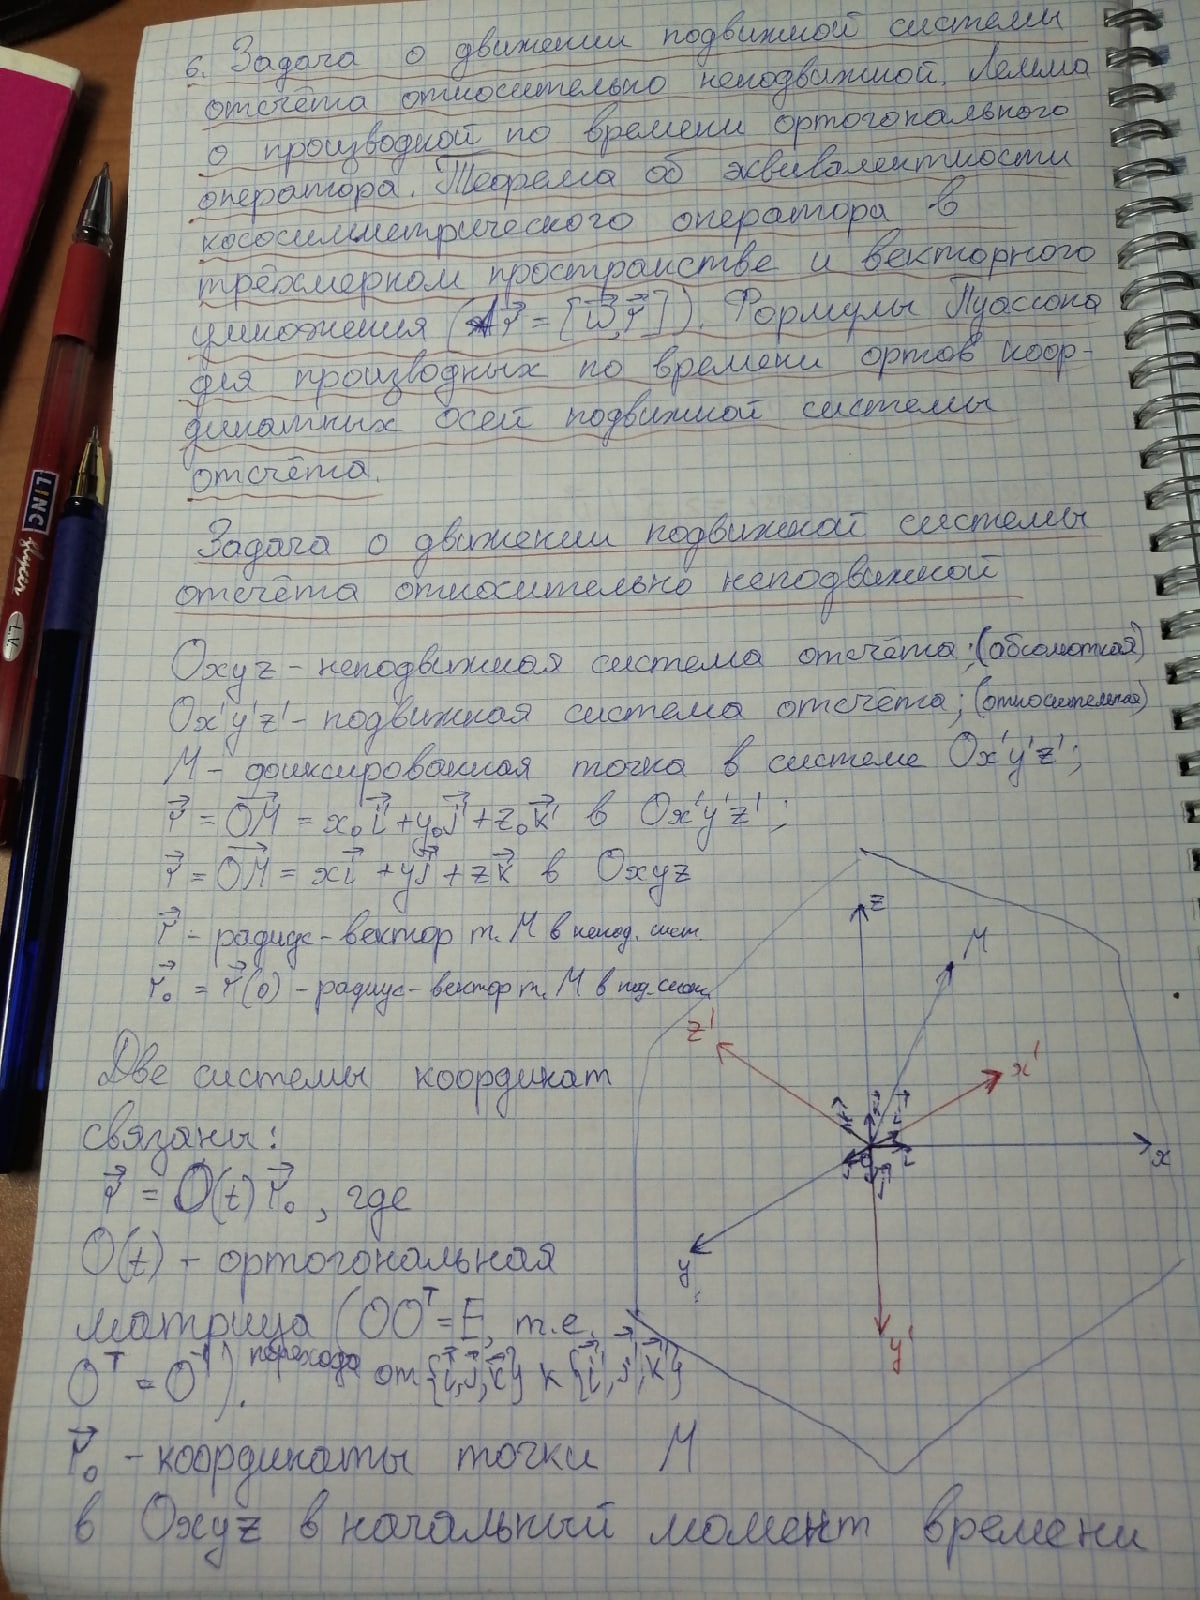 6. Задача о движении подвижной системы
отсчёта относительно неподвижной. Лемма
о производной по времени ортогонального
оператора. Теорема об эквивалентности
кососимметрического оператора в
трёхмерном пространстве и векторного
умножения (Ar⃗ = [ω⃗, r⃗]). Формулы Пуассона
для производных по времени ортов коор-
динатных осей подвижной системы
отсчёта.
Задача о движении подвижной системы
отсчёта относительно неподвижной
Oxyz - неподвижная система отсчёта; (абсолютная)
Ox'y'z' - подвижная система отсчёта; (относительная)
M - фиксированная точка в системе Ox'y'z';
r⃗ = OM⃗ = x₀i⃗' + y₀j⃗' + z₀k⃗' в Ox'y'z';
r⃗ = OM⃗ = xi⃗ + yj⃗ + zk⃗ в Oxyz
r⃗ - радиус-вектор т. M в непод. сист.
r⃗₀ = r⃗(0) - радиус-вектор т. M в под. сист.
Две системы координат
связаны:
r⃗ = O(t) r⃗₀, где
O(t) - ортогональная
матрица (OOᵀ = E, т.е.
Oᵀ = O⁻¹). перехода от {i⃗, j⃗, k⃗} к {i⃗', j⃗', k⃗'}
r⃗₀ - координаты точки M
в Oxyz в начальный момент времени
z
M
z'
x'
x
y
y'
LINC